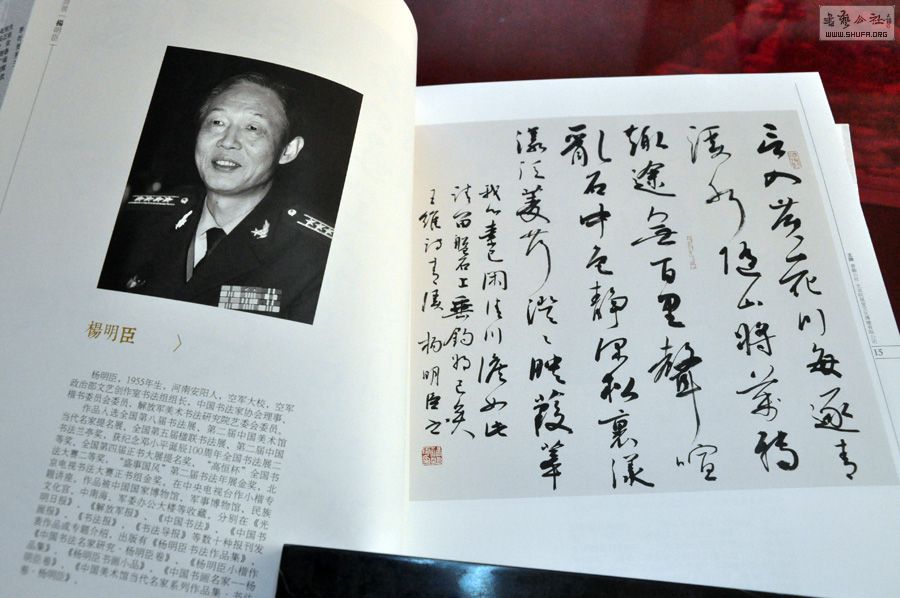 書藝公社
WWW.SHUFA.ORG
楊明臣
楊明臣
〉
杨明臣，1955年生，河南安阳人，空军大校，空军
政治部文艺创作室书法组组长，中国书法家协会理事，
楷书委员会委员，解放军美术书法研究院艺委会委员。
作品入选全国第八届书法展、第二届中国美术馆
当代名家提名展、全国第五届楹联书法展、第二届中国
书法兰亭奖，获纪念邓小平诞辰100周年全国书法展二
等奖，全国第四届正书大展提名奖，“高恒杯”全国书
法大赛二等奖，“盛事国风”第二届书法年展金奖，北
京电视书法大赛正书组金奖。在中央电视台作小楷专
题讲座。作品被中国国家博物馆、军事博物馆、民族
文化宫、中南海、军委办公大楼等收藏，分别在《光
明日报》、《解放军报》、《中国书法》、《中国书
法》、《书法报》、《书法导报》等数十种报刊发
表作品或专题介绍，出版有《杨明臣书法作品集》、
《中国书法名家研究·杨明臣卷》、《杨明臣小楷作
品集》、《杨明臣书画小品》、《中国书画名家——杨
明臣卷》、《中国美术馆当代名家系列作品集·书法
卷·杨明臣》。
言入黄花川每逐青
溪水随山将万转
趣途无百里声喧
乱石中色静深松里漾
漾泛菱荇澄澄映葭苇
我心素已闲清川澹如此
请留盘石上垂钓将已矣
王维诗青溪 杨明臣书
15